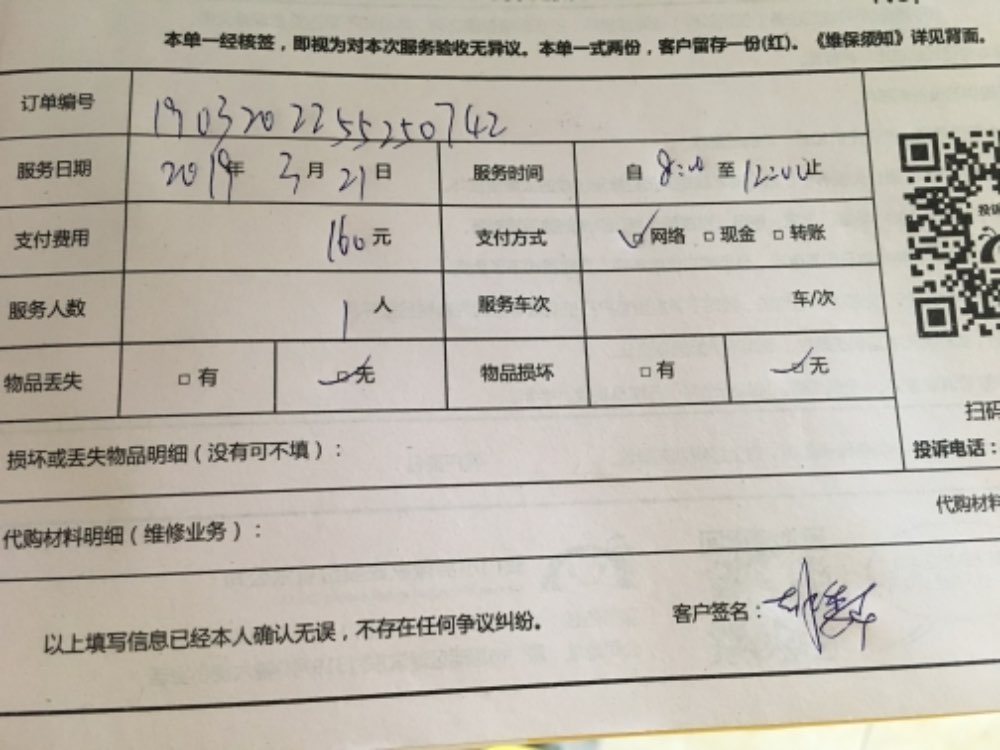 本单一经核签，即视为对本次服务验收无异议。本单一式两份，客户留存一份(红)。《维保须知》详见背面。
订单编号 1903202255250742
服务日期 2019年 3月 21日 服务时间 自 8:00 至 12:00止
支付费用 160元 支付方式 ☑网络 □现金 □转账
服务人数 1人 服务车次 车/次
物品丢失 □有 ☑无 物品损坏 □有 ☑无
扫码
损坏或丢失物品明细（没有可不填）： 投诉电话：
代购材料明细（维修业务）： 代购材料
以上填写信息已经本人确认无误，不存在任何争议纠纷。 客户签名：